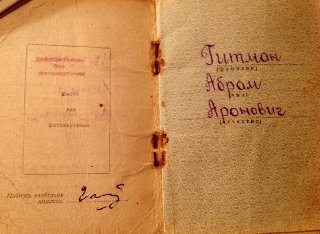 Действительно
без
фотокарточки
Место
для
фотокарточки
Подпись владельца
книжки
Гитман
(фамилия)
Абрам
(имя)
Аронович
(отчество)